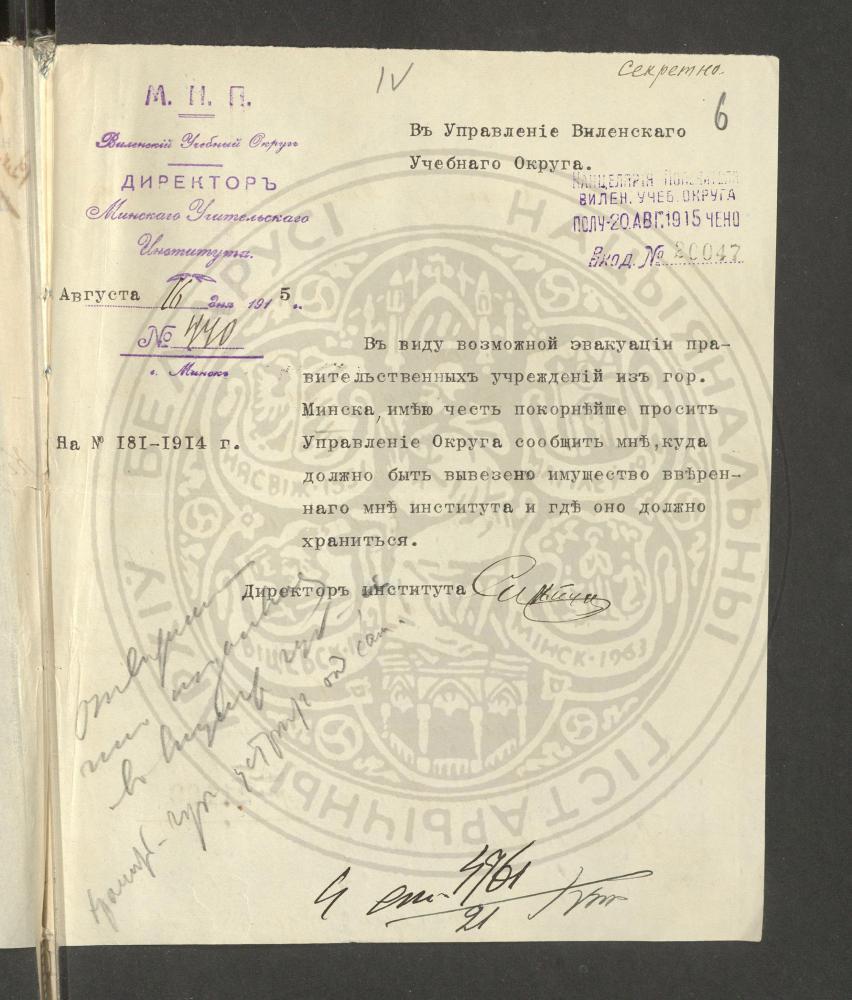 IV
Секретно.
6
М. Н. П.
Виленскій Учебный Округъ
ДИРЕКТОРЪ
Минскаго Учительскаго
Института.
Августа 16 дня 1915 г.
№ 440
г. Минскъ
На № 181-1914 г.
Въ Управленіе Виленскаго
Учебнаго Округа.
КАНЦЕЛЯРІЯ ПОПЕЧИТЕЛЯ
ВИЛЕН. УЧЕБ. ОКРУГА
ПОЛУ-20.АВГ.1915 ЧЕНО
Вход. № 20047
Въ виду возможной эвакуаціи пра-
вительственныхъ учрежденій изъ гор.
Минска,имѣю честь покорнѣйше просить
Управленіе Округа сообщить мнѣ,куда
должно быть вывезено имущество ввѣрен-
наго мнѣ института и гдѣ оно должно
храниться.
Директоръ института
НАЦЫЯНАЛЬНЫ
ГІСТАРЫЧНЫ
АРХІЎ БЕЛАРУСІ
НЯСВІЖ
МІНСК·1963
21